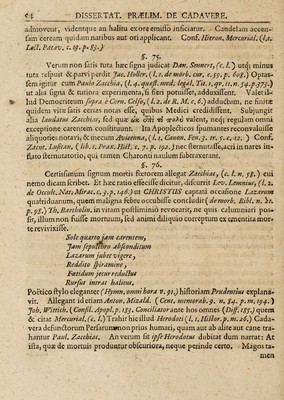 54 DISSERTAT. PRÆLIM. DE CADAVERE.
admovent, videntque an halitu ex ore emisso inficiatur. - Candelam accen-
sam ceream quidam naribus aut ori applicant. Conf. Hieron. Mercurial. (l. 2.
Lect. Patav. c. 19. p. 83.)
§. 75.
Verum non satis tuta hæc signa judicat Dan. Sennert. (c. l.) utq; minus
tuta respuit & parvi perdit Jac. Holler. (l. 1. de morb. cur. c. 59. p. 608.) Optas-
sem igitur cum Paulo Zacchia (l. 4. quæst. med. legal. Tit. 1. qv. 11. n. 54. p. 373.)
ut alia signa & tutiora experimenta, si fieri potuisset, adduxissent. Valeri-
Ind Democriteum supra è Corn. Celso, (l. 2. de R. M. c. 6.) adductum, ne finitæ
quidem vitæ satis certas esse, quibus Medici credidissent. Subjungit
alia laudatus Zacchias, sed quæ ὡς ἐπὶ τὸ πολὺ valent, neq; regulam omni
exceptione carentem constituunt. Ita Apoplecticos spumantes reconvaluisse
aliquoties notavi, & mecum Avicenna, (l. 1. Canon. Fen. 3. tr. 5. c. 12.) Conf.
Zacut. Lusitan. (lib. 1. Prax. Hist. c. 7. p. 192.) nec sternutasse, acri in nares in-
flato sternutatorio, qui tamen Charonti naulum subtraxerant.
§. 76.
Certissimum signum mortis fœtorem allegat Zacchias, (c. l. n. 58.) cui
nemo dicam scribet. Et hæc ratio effecisse dicitur, discurrit Lev. Lemnius, (l. 2.
de Occult. Nat. Mirac. c. 3. p. 146.) ut CHRISTUS captatâ occasione Lazarum
quatriduanum, quem maligna febre occubuisse concludit (de morb. Bibl. n. 22.
p. 95.) Th. Bartholin. in vitam postliminiò revocarit, ne quis calumniari pos-
sit, illum non fuisse mortuum, sed animi diliquio correptum ex ementita mor-
te revixisse.
Sole quarto jam carentem,
Jam sepulchro absconditum
Lazarum jubet vigere,
Reddito spiramine,
Fœtidum jecur reductus
Rursus intrat halitus.
Poëtico stylo eleganter (Hymn. omni hora v. 91.) historiam Prudentius explana-
vit. Allegant id etiam Anton. Mizald. (Cent. memorab. 9. n. 54. p. m. 194.)
Joh. Wittich. (Consil. Apopl. p. 183. Conciliator ante hos omnes (Diff. 185.) quem
& citat Mercurial. (c. l.) Trahit hic illud Herodoti (l. 1. Histor. p. m. 26.) Cada-
vera defunctorum Persarum non prius humari, quam aut ab alite aut cane tra-
hantur Paul. Zacchias. An verum sit ipse Herodotus dubitat dum narrat: At
ista, quæ de mortuis produntur obscuriora, neque perinde certo. Magos ta-
men